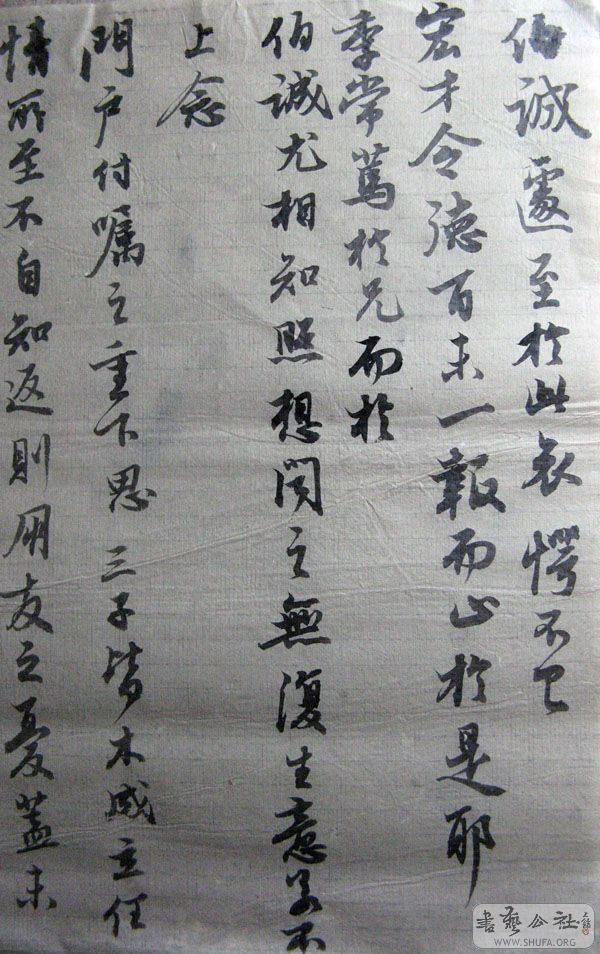 伯誠遽至於此哀愕不已
宏才令德百未一報而止於是耶
季常篤於兄而於
伯誠尤相知照想聞之無復生意若不
上念
門戶付囑之重下思三子皆木成立任
情所至不自知返則朋友之憂蓋未
書藝公社
WWW.SHUFA.ORG